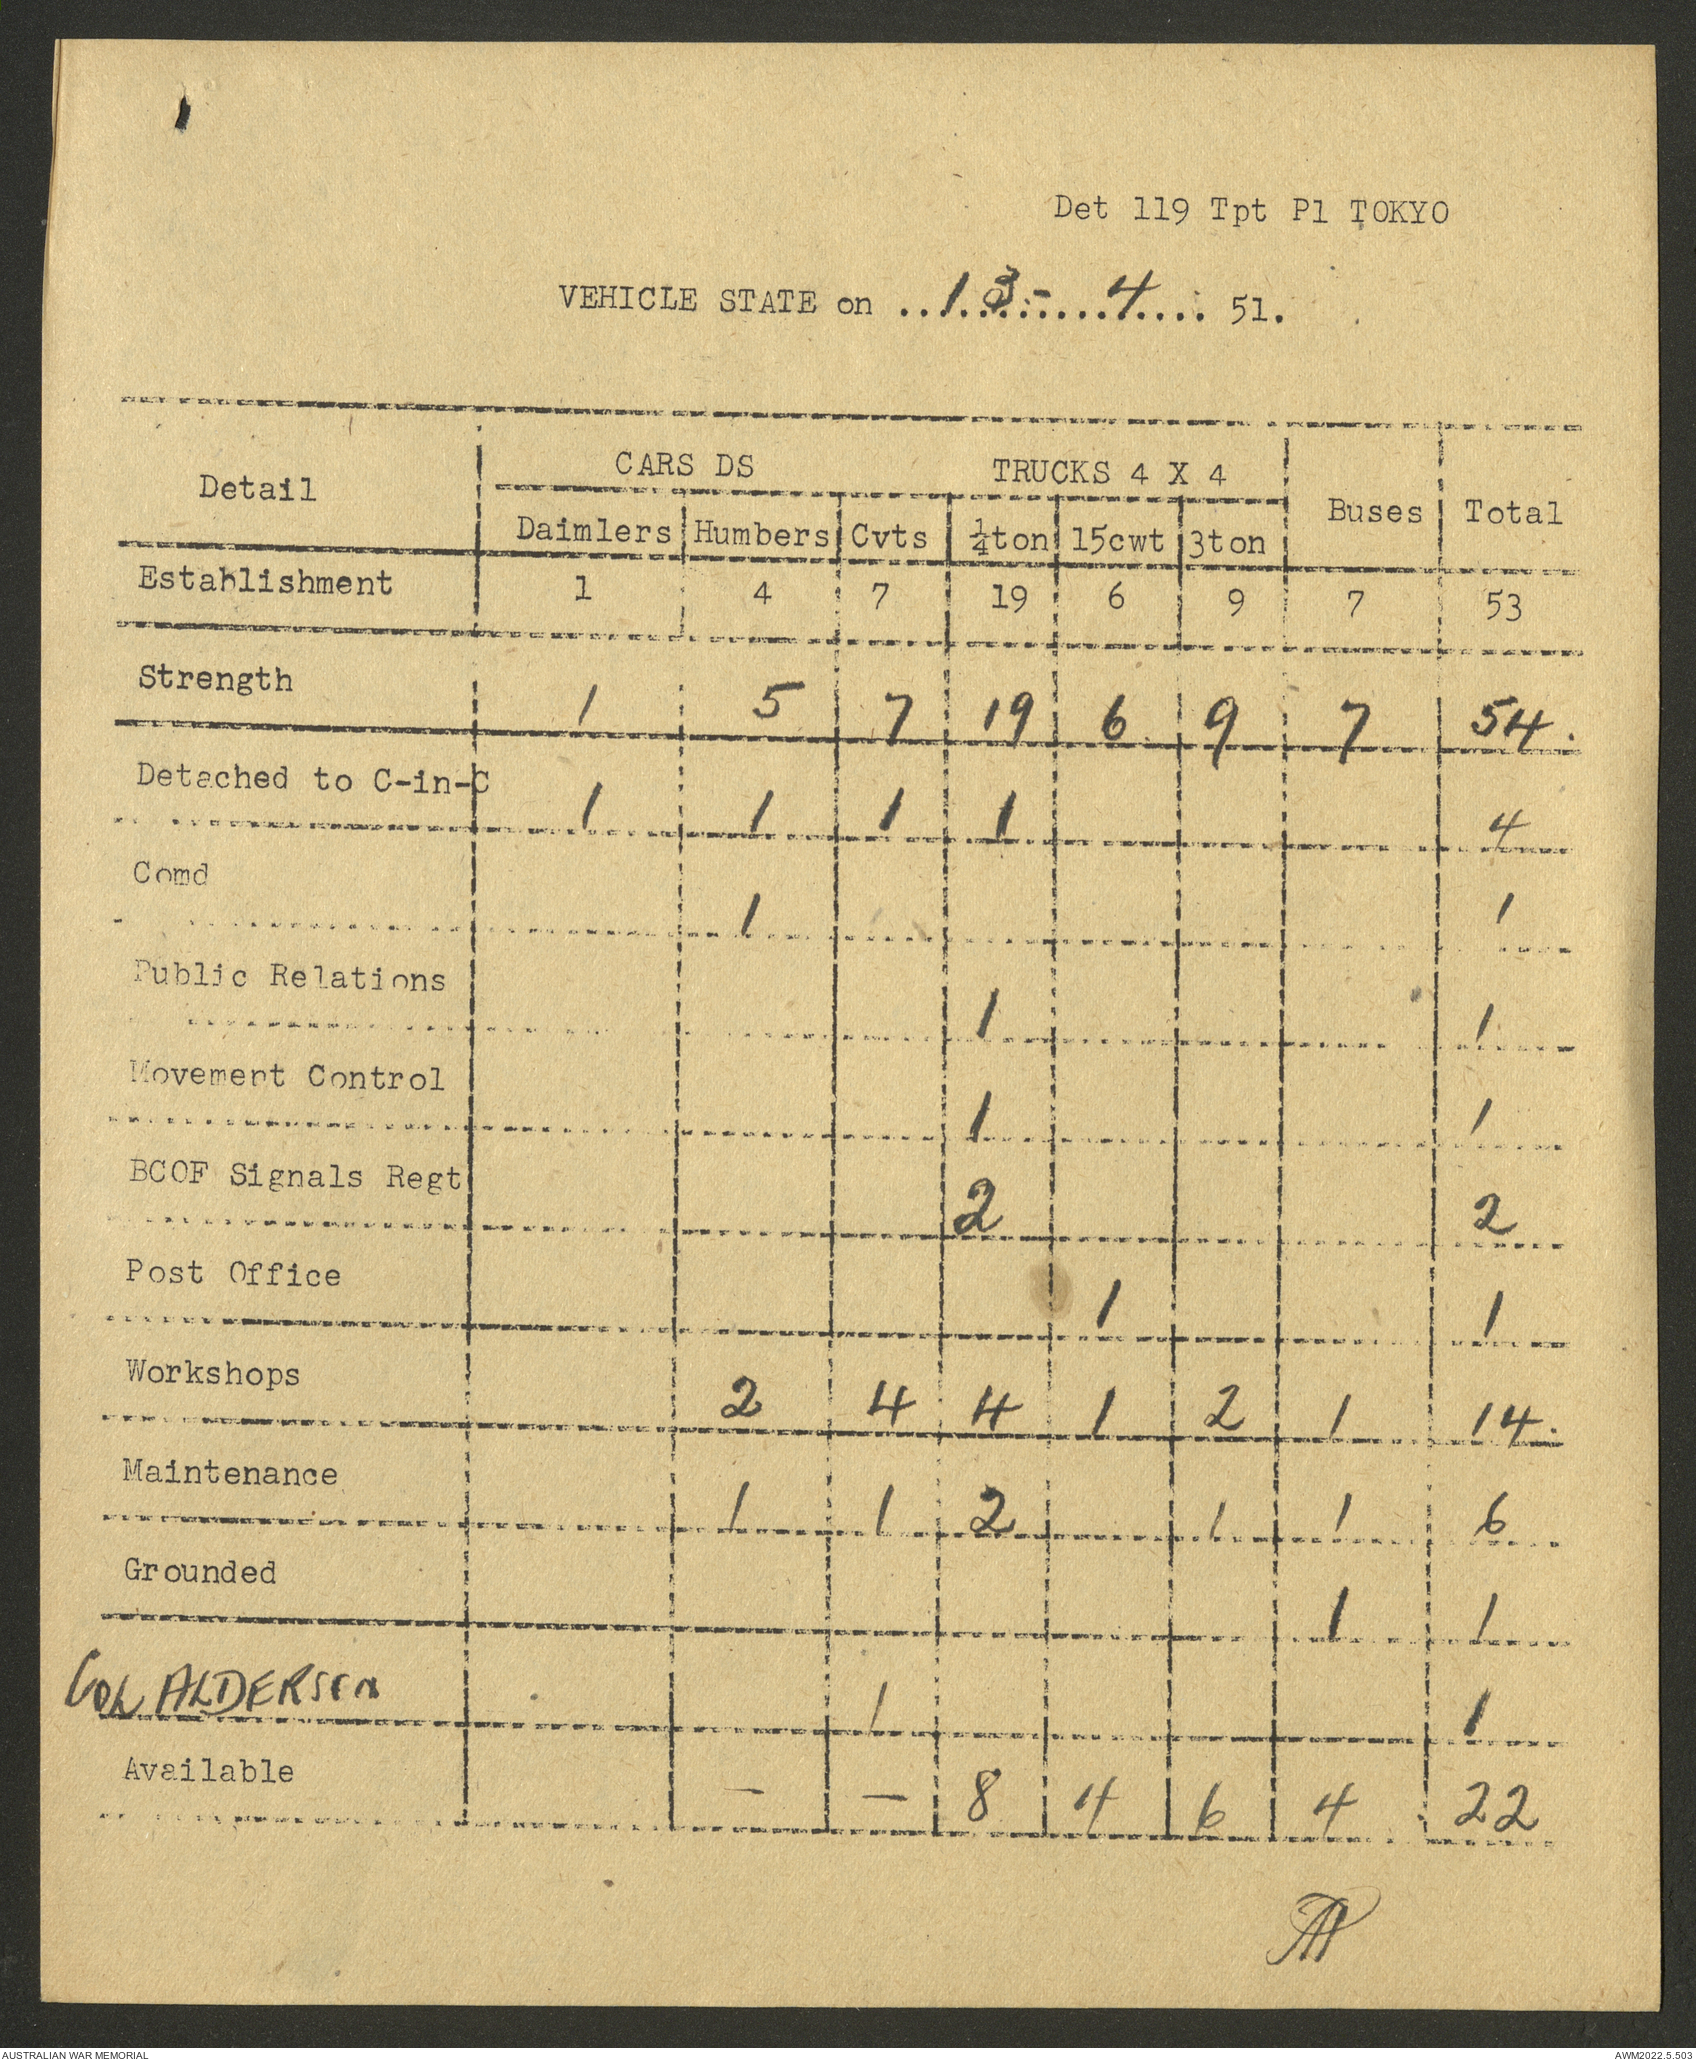 Det 119 Tpt Pl TOKYO
VEHICLE STATE on ..13.-...4.... 51.
Detail CARS DS TRUCKS 4 X 4 Buses Total
Daimlers Humbers Cvts ¼ton 15cwt 3ton
Establishment 1 4 7 19 6 9 7 53
Strength 1 5 7 19 6 9 7 54.
Detached to C-in-C 1 1 1 1 4
Comd 1 1
Public Relations 1 1
Movement Control 1 1
BCOF Signals Regt 2 2
Post Office 1 1
Workshops 2 4 4 1 2 1 14.
Maintenance 1 1 2 1 1 6
Grounded 1 1
COL ALDERSEN 1 1
Available — — 8 4 6 4 22
AUSTRALIAN WAR MEMORIAL AWM2022.5.503